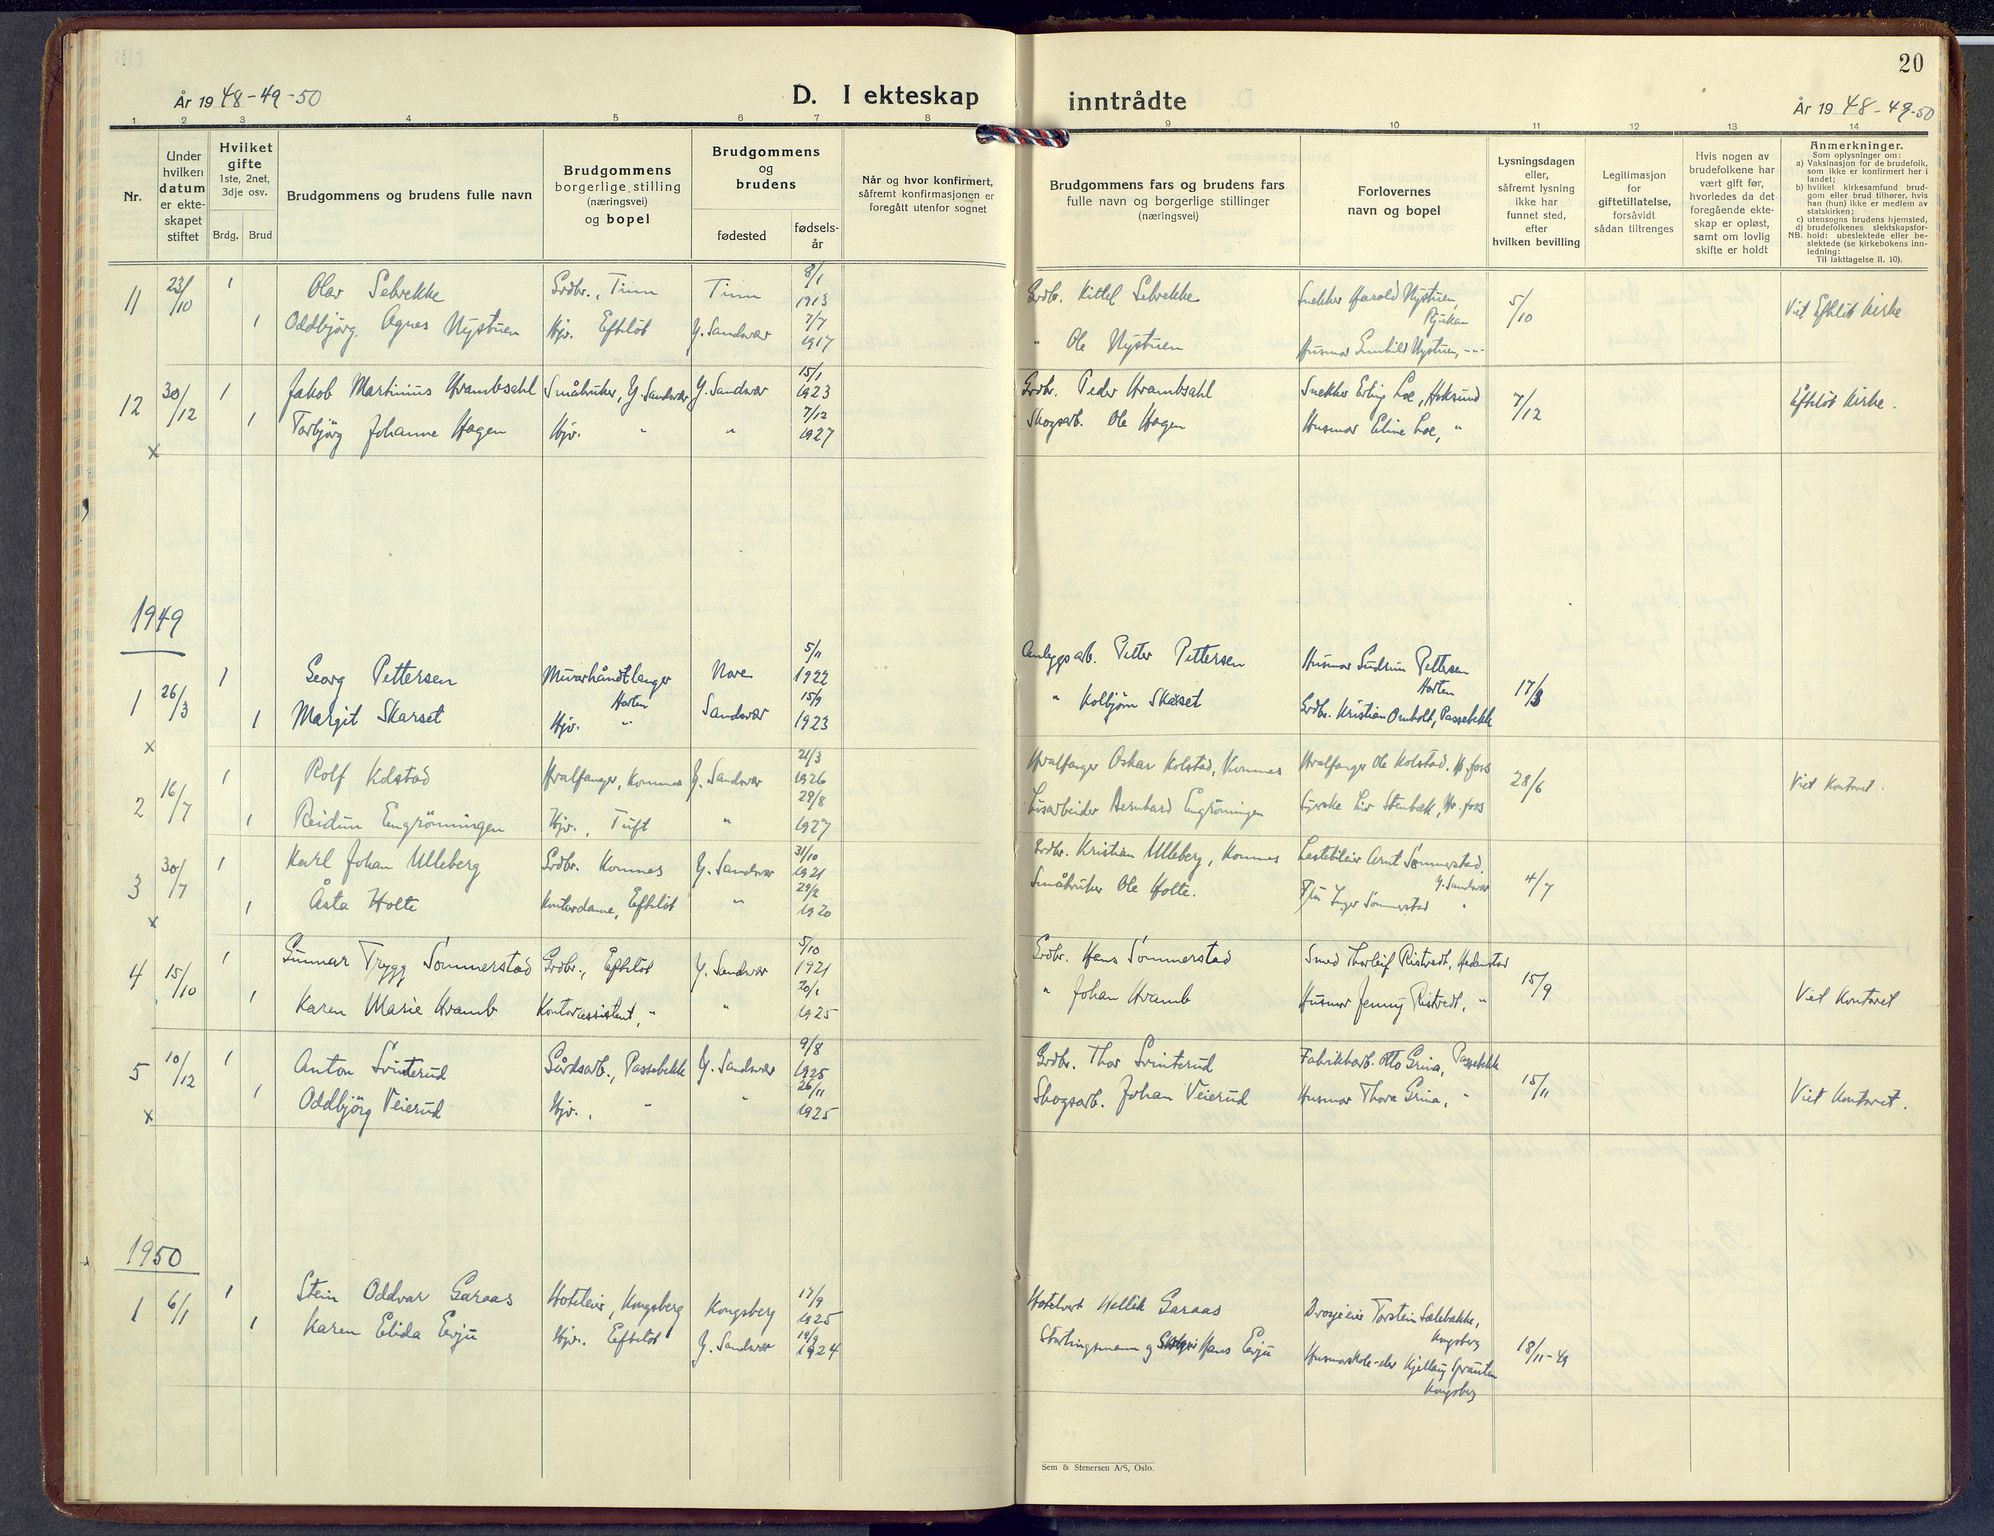 20
År 1948-49-50
D. I ekteskap
inntrådte
År 1948-49-50
1 2 3 4 5 6 7 8 9 10 11 12 13 14
Nr.
Under
hvilken
datum
er ekte-
skapet
stiftet
Hvilket
gifte
1ste, 2net,
3dje osv.
Brdg. Brud
Brudgommens og brudens fulle navn
Brudgommens
borgerlige stilling
(næringsvei)
og bopel
Brudgommens
og
brudens
fødested
fødsels-
år
Når og hvor konfirmert,
såfremt konfirmasjonen er
foregått utenfor sognet
Brudgommens fars og brudens fars
fulle navn og borgerlige stillinger
(næringsvei)
Forlovernes
navn og bopel
Lysningsdagen
eller,
såfremt lysning
ikke har
funnet sted,
efter
hvilken bevilling
Legitimasjon
for
giftetillatelse,
forsåvidt
sådan tiltrenges
Hvis nogen av
brudefolkene har
vært gift før,
hvorledes da det
foregående ekte-
skap er opløst,
samt om lovlig
skifte er holdt
Anmerkninger.
Som oplysninger om:
a) Vaksinasjon for de brudefolk,
som ikke er konfirmert her i
landet;
b) hvilket kirkesamfund brud-
gom eller brud tilhører, hvis
han (hun) ikke er medlem av
statskirken;
c) utensogns brudens hjemsted,
d) brudefolkenes slektskapsfor-
NB. hold: ubeslektede eller be-
slektede (se kirkebokens inn-
ledning:
Til iakttagelse II. 10).
11 23/10 1 Olav Selvekke Grdbr., Tinn Tinn 8/1 1913 Grdbr. Kittel Selvekke Snekker Harald Nystuen, Rjukan 5/10 Viet Efteløt Kirke
1 Oddbjörg Agnes Nystuen Hjv. Efteløt Y. Sandsvær 7/7 1917 " Ole Nystuen Husmor Nystuen, -"-
12 30/12 1 Jakob Martinius Hvambsahl Småbruker, Y. Sandsvær Y. Sandsvær 15/1 1923 Grdbr. Peder Hvambsahl Snekker Erling Loe, Hoksund 7/12 Efteløt Kirke.
1 Torbjörg Johanne Hagen Hjv. " " 7/12 1927 Skogsarb. Ole Hagen Husmor Eline Loe, "
x
1949
1 26/3 1 Georg Pettersen Murerhåndtlanger Horten Nore 5/11 1922 Anleggsarb. Petter Pettersen Husmor Gudrun Pettersen Horten 17/3
1 Margit Skarset Hjv. " Sandsvær 15/9 1923 " Kolbjørn Skarset Grdbr. Kristian Omholt, Passebekk
x
2 16/7 1 Rolf Kolstad Hvalfanger, Komnes Y. Sandsvær 21/3 1926 Hvalfanger Oskar Kolstad, Komnes Hvalfanger Ole Kolstad. 28/6 Viet Kontoret.
1 Reidun Engrönningen Hjv., Tuft " 29/8 1927 Bernhard Engrönningen Liv Stenbæk,
3 30/7 1 Karl Johan Ulleberg Grdbr. Komnes Y. Sandsvær 31/10 1921 Grdbr. Kristian Ulleberg, Komnes Lastebileier Arnt Sömmerstad, Y. Sandsvær 4/7
1 Åsta Holte Kontordame, Efteløt " 29/2 1920 Småbruker Ole Holte. Inger Sömmerstad "
x
4 15/10 1 Gunnar Trygg Sömmerstad Grdbr., Efteløt Y. Sandsvær 5/10 1921 Grdbr. Hans Sömmerstad Smed Thorleif Ristvedt, Hedenstad 15/9 Viet Kontoret
1 Karen Marie Hvamb Kontorassistent, " " 20/1 1925 " Johan Hvamb Husmor Jenny Ristvedt, "
5 10/12 1 Anton Svinterud Gårdsarb., Passebekk Y. Sandsvær 9/8 1925 Grdbr. Thor Svinterud Fabrikkarb. Otto Grina, Passebekk 15/11 Viet Kontoret.
1 Oddbjörg Veierud Hjv., " " 26/11 1925 Skogsarb. Johan Veierud Husmor Thora Grina, "
x
1950
1 6/1 1 Stein Oddvar Garaas Hoteleier, Kongsberg Kongsberg 17/9 1925 Hotelvert Hellik Garaas Drosjeeier Torstein Sælebakke, Kongsberg 18/11-49
1 Karen Elida Evju Hjv. Efteløt Y. Sandsvær 19/9 1924 Stortingsmann og Hans Evju Kjellaug Kongsberg
Sem & Stenersen A/S, Oslo.